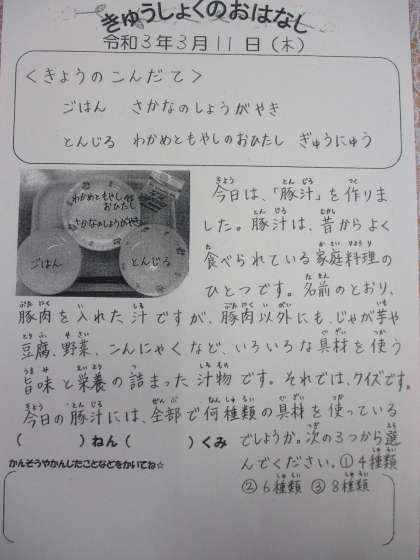 きゅうしょくのおはなし
令和3年3月11日（木）
＜きょうのこんだて＞
ごはん さかなのしょうがやき
とんじる わかめともやしのおひたし ぎゅうにゅう
わかめともやし
のおひたし
さかなのしょうがやき
ごはん
とんじる
今日は、「豚汁」を作りま
した。豚汁は、昔からよく
食べられている家庭料理の
ひとつです。名前のとおり、
豚肉を入れた汁ですが、豚肉以外にも、じゃが芋や
豆腐、野菜、こんにゃくなど、いろいろな具材を使う
旨味と栄養の詰まった汁物です。それでは、クイズです。
今日の豚汁には、全部で何種類の具材を使っている
でしょうか。次の3つから選
んでください。①4種類
②6種類 ③8種類
（ ）ねん（ ）くみ
かんそうやかんじたことなどをかいてね☆